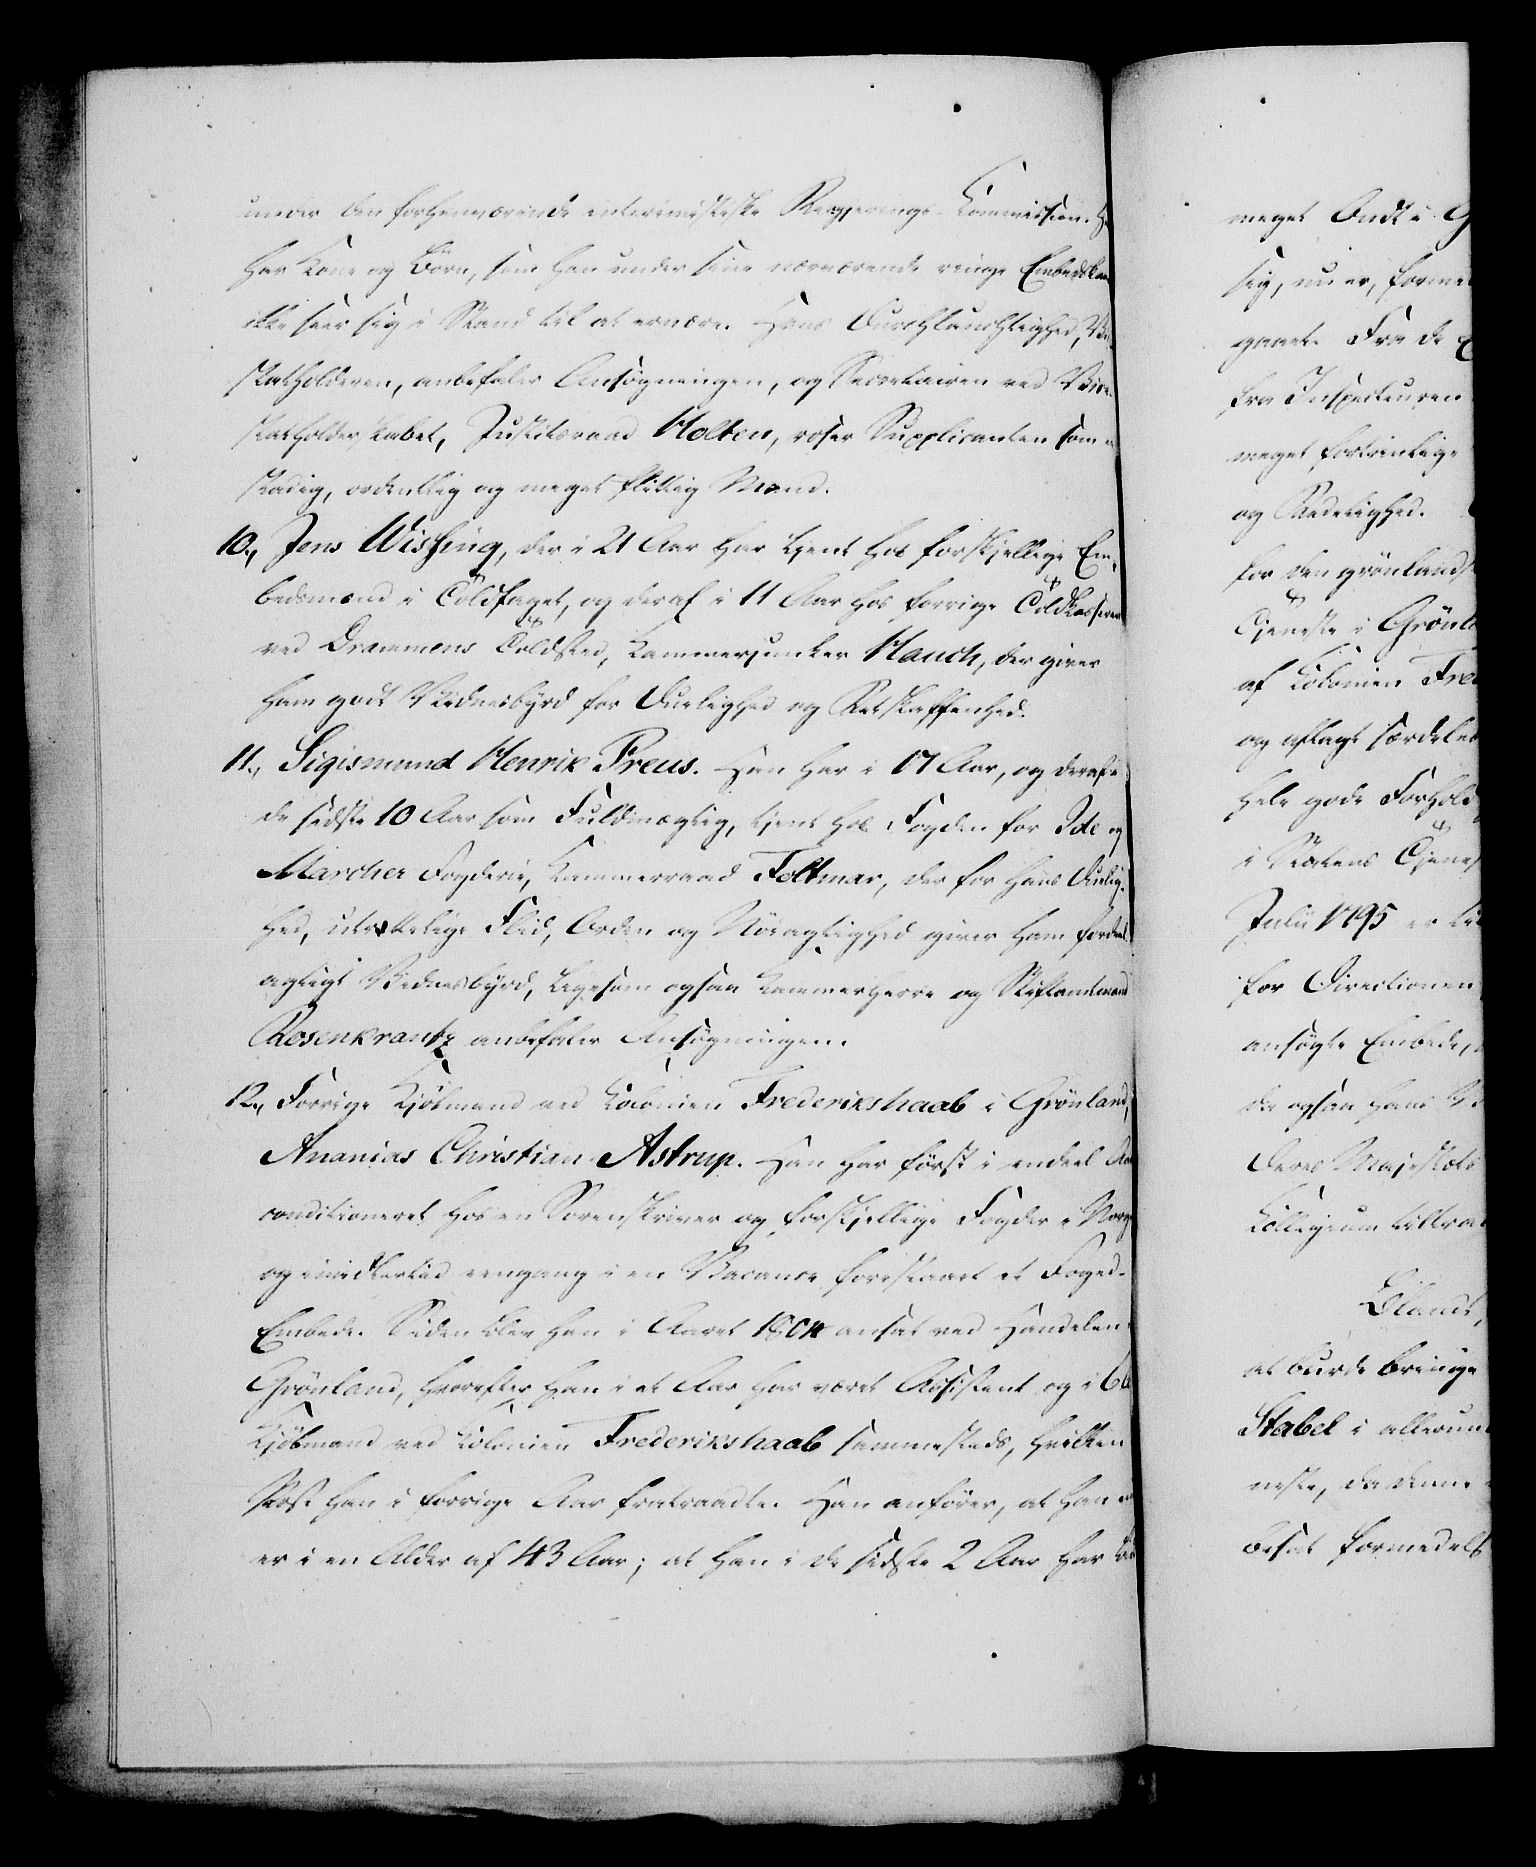 under den forhenværende interimistiske Regjerings-Commission. H
har Kone og Börn, som han under sine nærværende ringe Embeds
ikke seer sig i Stand til at ernære. Hans Durchlauchtighed, Vi
statholderen, anbefaler Ansögningen, og Secretairen ved Vice-
statholderskabet, Justitsraad Holten, roser Supplicanten som
stadig, ordentlig og meget flittig Mand.
10., Jens Wissing, der i 21 Aar har tjent hos forskjellige Em-
bedsmænd i Toldfaget, og deraf i 11 Aar hos forrige Toldkasserer
ved Drammens Toldsted, Kammerjunker Hauch, der giver
ham godt Vidnesbyrd for Duelighed og Retskaffenhed.
11., Sigismund Henrik Preus. Han har i 17 Aar, og deraf i
de sidste 10 Aar som Fuldmægtig, tjent hos Fogden for Ide og
Marcher Fogderie, Kammerraad Feltman, der for hans Duelig-
hed, utrættelige Flid, Orden og Nöiagtighed giver ham fordeel-
agtigt Vidnesbyrd, ligesom ogsaa Kammerherre og Stiftamtmand
Rosenkrantz anbefaler Ansögningen.
12., Forrige Kjöbmand ved Colonien Frederikshaab i Grönland,
Ananias Christian Astrup. Han har först i endeel Aar
conditioneret hos en Sorenskriver og forskjellige Fogder i Norge
og imidlertid eengang i en Vacance forestaaet et Foged-
Embede. Siden blev han i Aaret 1804 ansat ved Handelen
Grönland, hvorefter han i et Aar har været Assistent og i 6
Kjöbmand ved Colonien Frederikshaab sammesteds, hvilken
Post han i forrige Aar fratraadte. Han anförer, at han
er i en Alder af 43 Aar; at han i de sidste 2 Aar har
meget Ondt i G
sig, nu er, forme
gaaet. Fra de
fra Inspecteuren
meget fortrinlige
og Sædelighed.
for den grönlandsk
Tjeneste i Grönl
af Colonien Fred
og aflagt særdeles
hele gode Forhold
i Statens Tjenes
Julii 1795 er
for Directionen
ansögte Embede,
da ogsaa hans
Deres Majestæts
Collegium tiltra
Ölands,
at burde bringe
Stabel i allerun
neste, da denne
besat formedelst